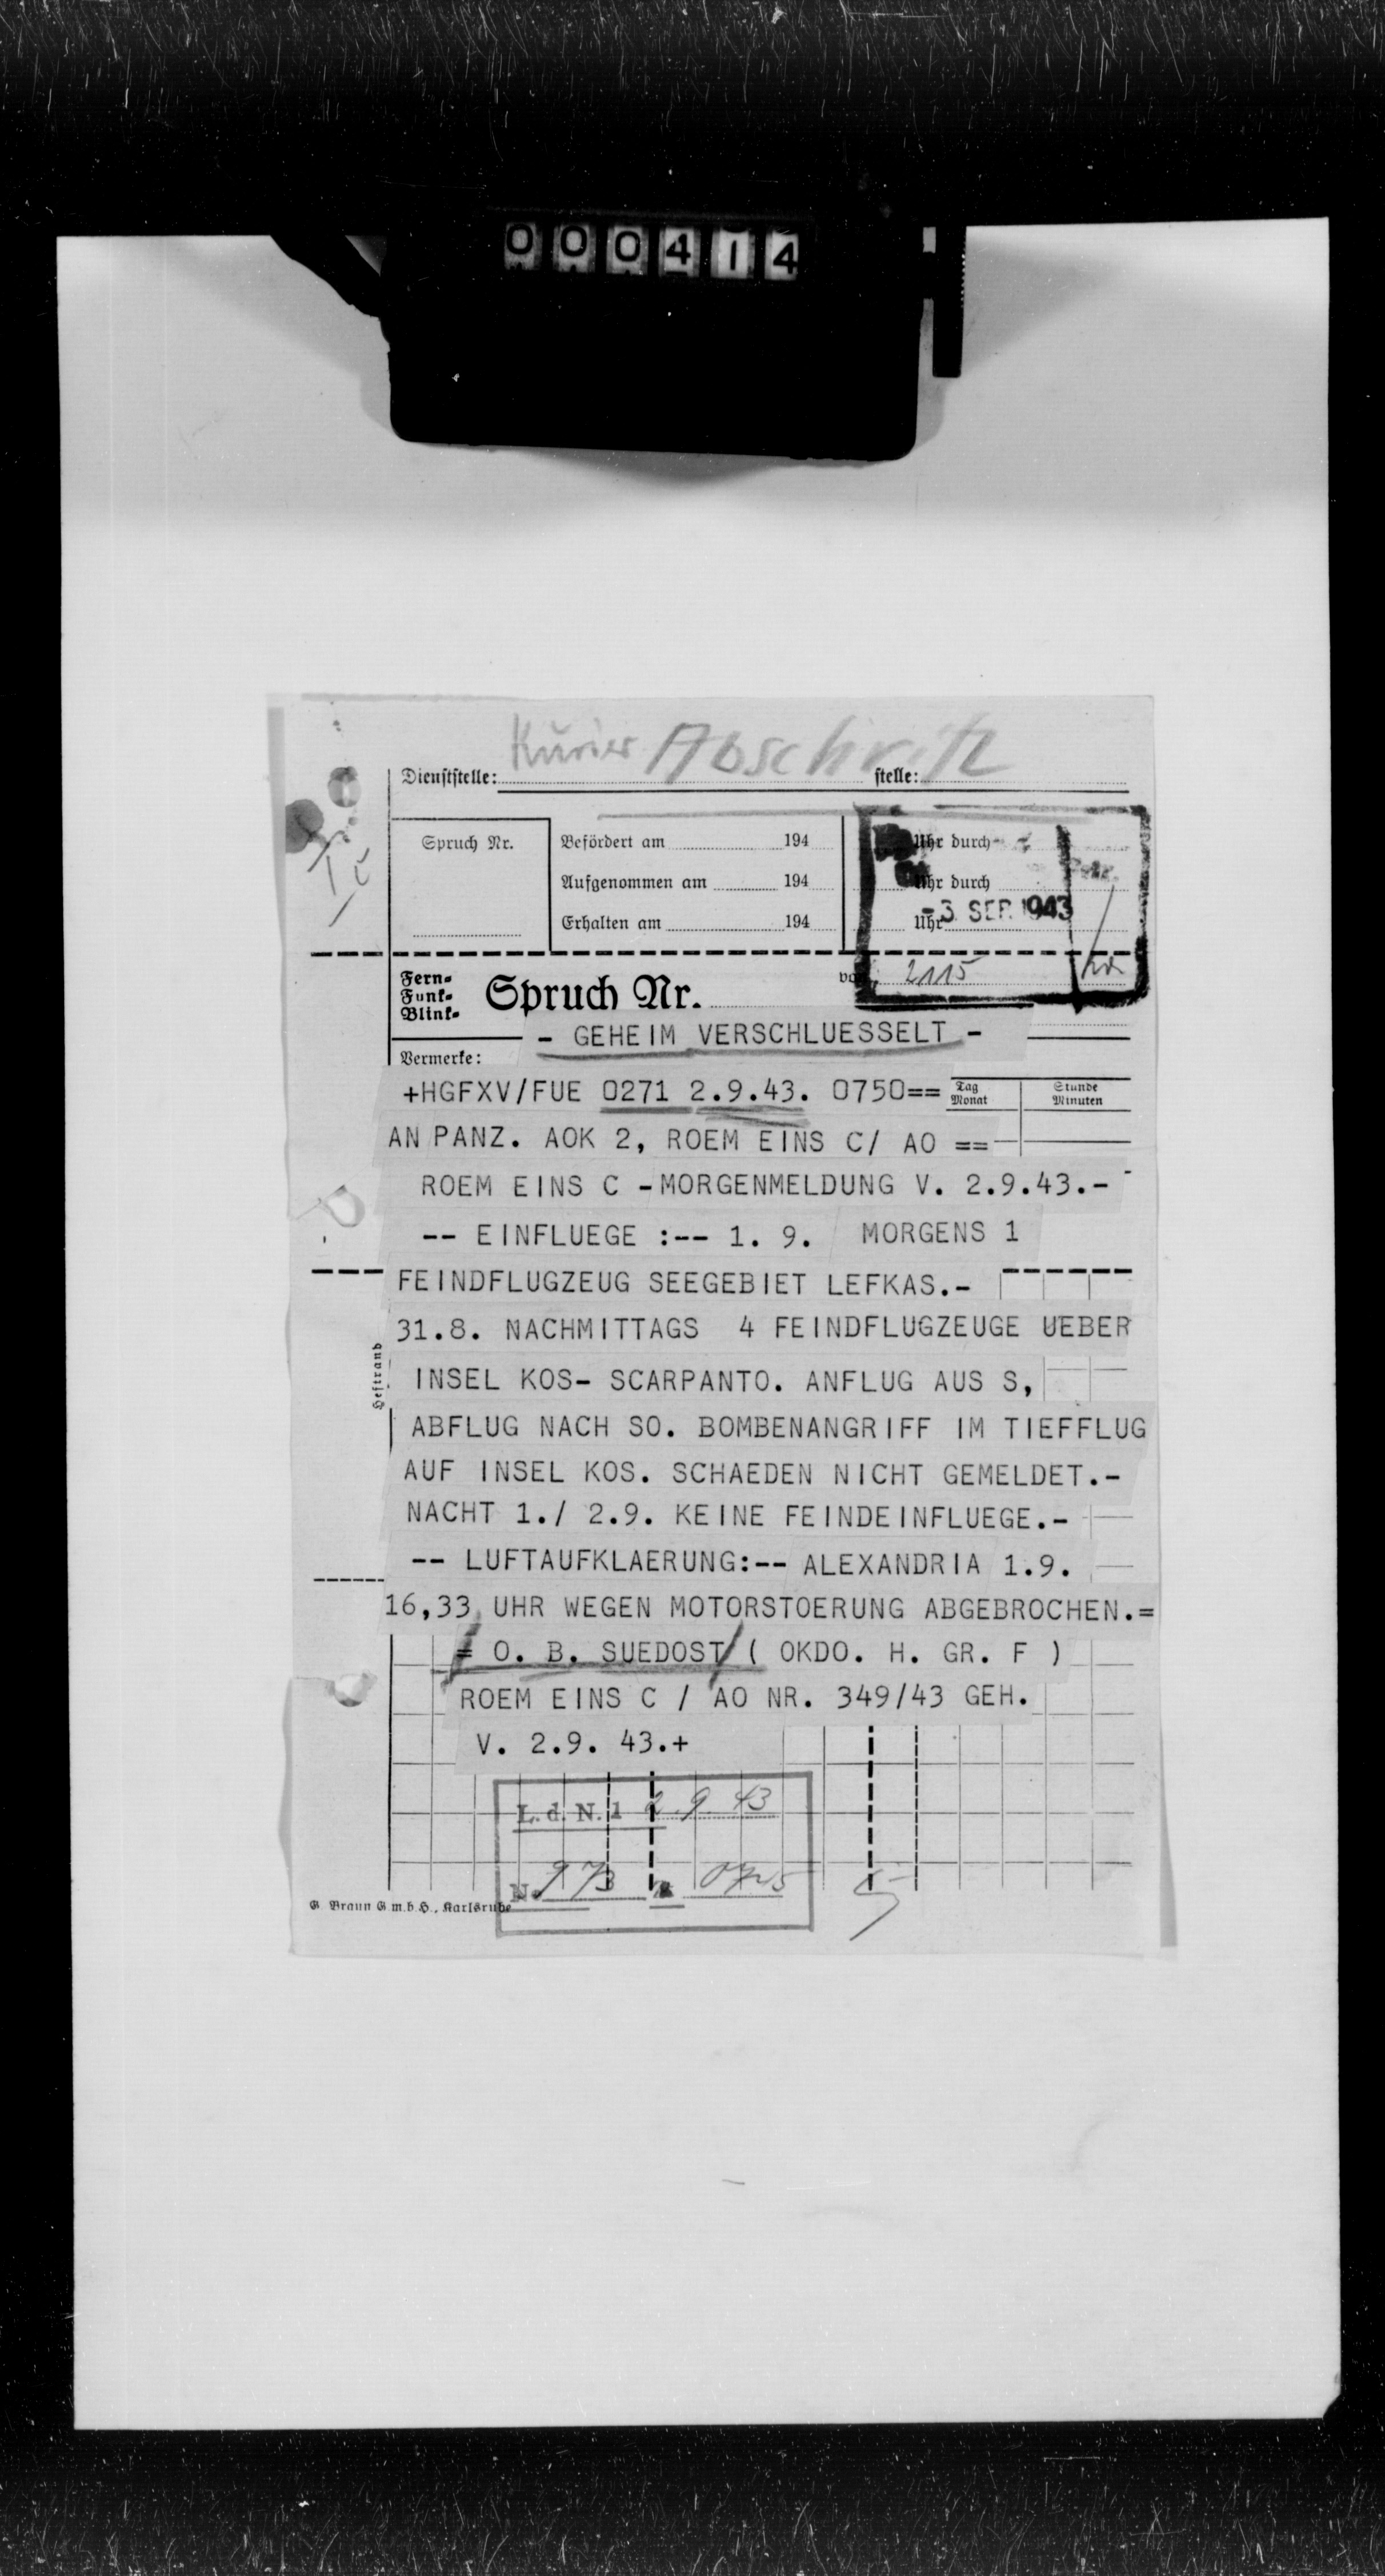 000414
Kurier Abschrift
Dienststelle: stelle:
Spruch Nr.
Befördert am 194 Uhr durch
Aufgenommen am 194 Uhr durch
Erhalten am 194 Uhr
-3. SEP. 1943
Ic
Fern-
Funk-
Blink-
Spruch Nr. 2115
- GEHEIM VERSCHLUESSELT -
Vermerke:
+HGFXV/FUE 0271 2.9.43. 0750==
Tag Stunde
Monat Minuten
AN PANZ. AOK 2, ROEM EINS C/ AO ==
ROEM EINS C -MORGENMELDUNG V. 2.9.43.-
-- EINFLUEGE :-- 1. 9. MORGENS 1
FEINDFLUGZEUG SEEGEBIET LEFKAS.-
31.8. NACHMITTAGS 4 FEINDFLUGZEUGE UEBER
INSEL KOS- SCARPANTO. ANFLUG AUS S,
ABFLUG NACH SO. BOMBENANGRIFF IM TIEFFLUG
AUF INSEL KOS. SCHAEDEN NICHT GEMELDET.-
NACHT 1./ 2.9. KEINE FEINDEINFLUEGE.-
-- LUFTAUFKLAERUNG:-- ALEXANDRIA 1.9.
16,33 UHR WEGEN MOTORSTOERUNG ABGEBROCHEN.=
= O. B. SUEDOST ( OKDO. H. GR. F )
ROEM EINS C / AO NR. 349/43 GEH.
V. 2.9. 43.+
Heftrand
L. d. N. 1 2.9.43
N. 973
G Braun G.m.b.H., Karlsruhe